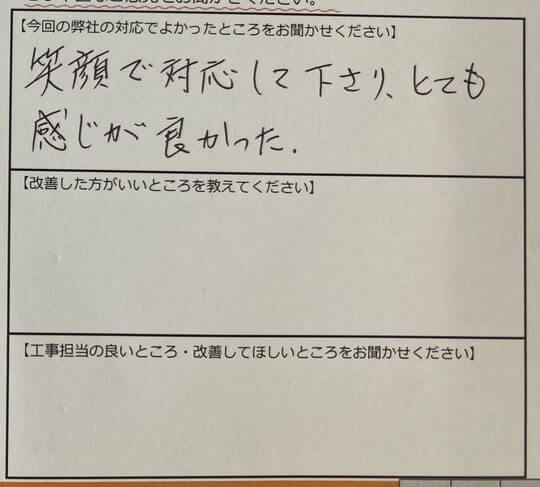 【今回の弊社の対応でよかったところをお聞かせください】
笑顔で対応して下さり、とても
感じが良かった.
【改善した方がいいところを教えてください】
【工事担当の良いところ・改善してほしいところをお聞かせください】